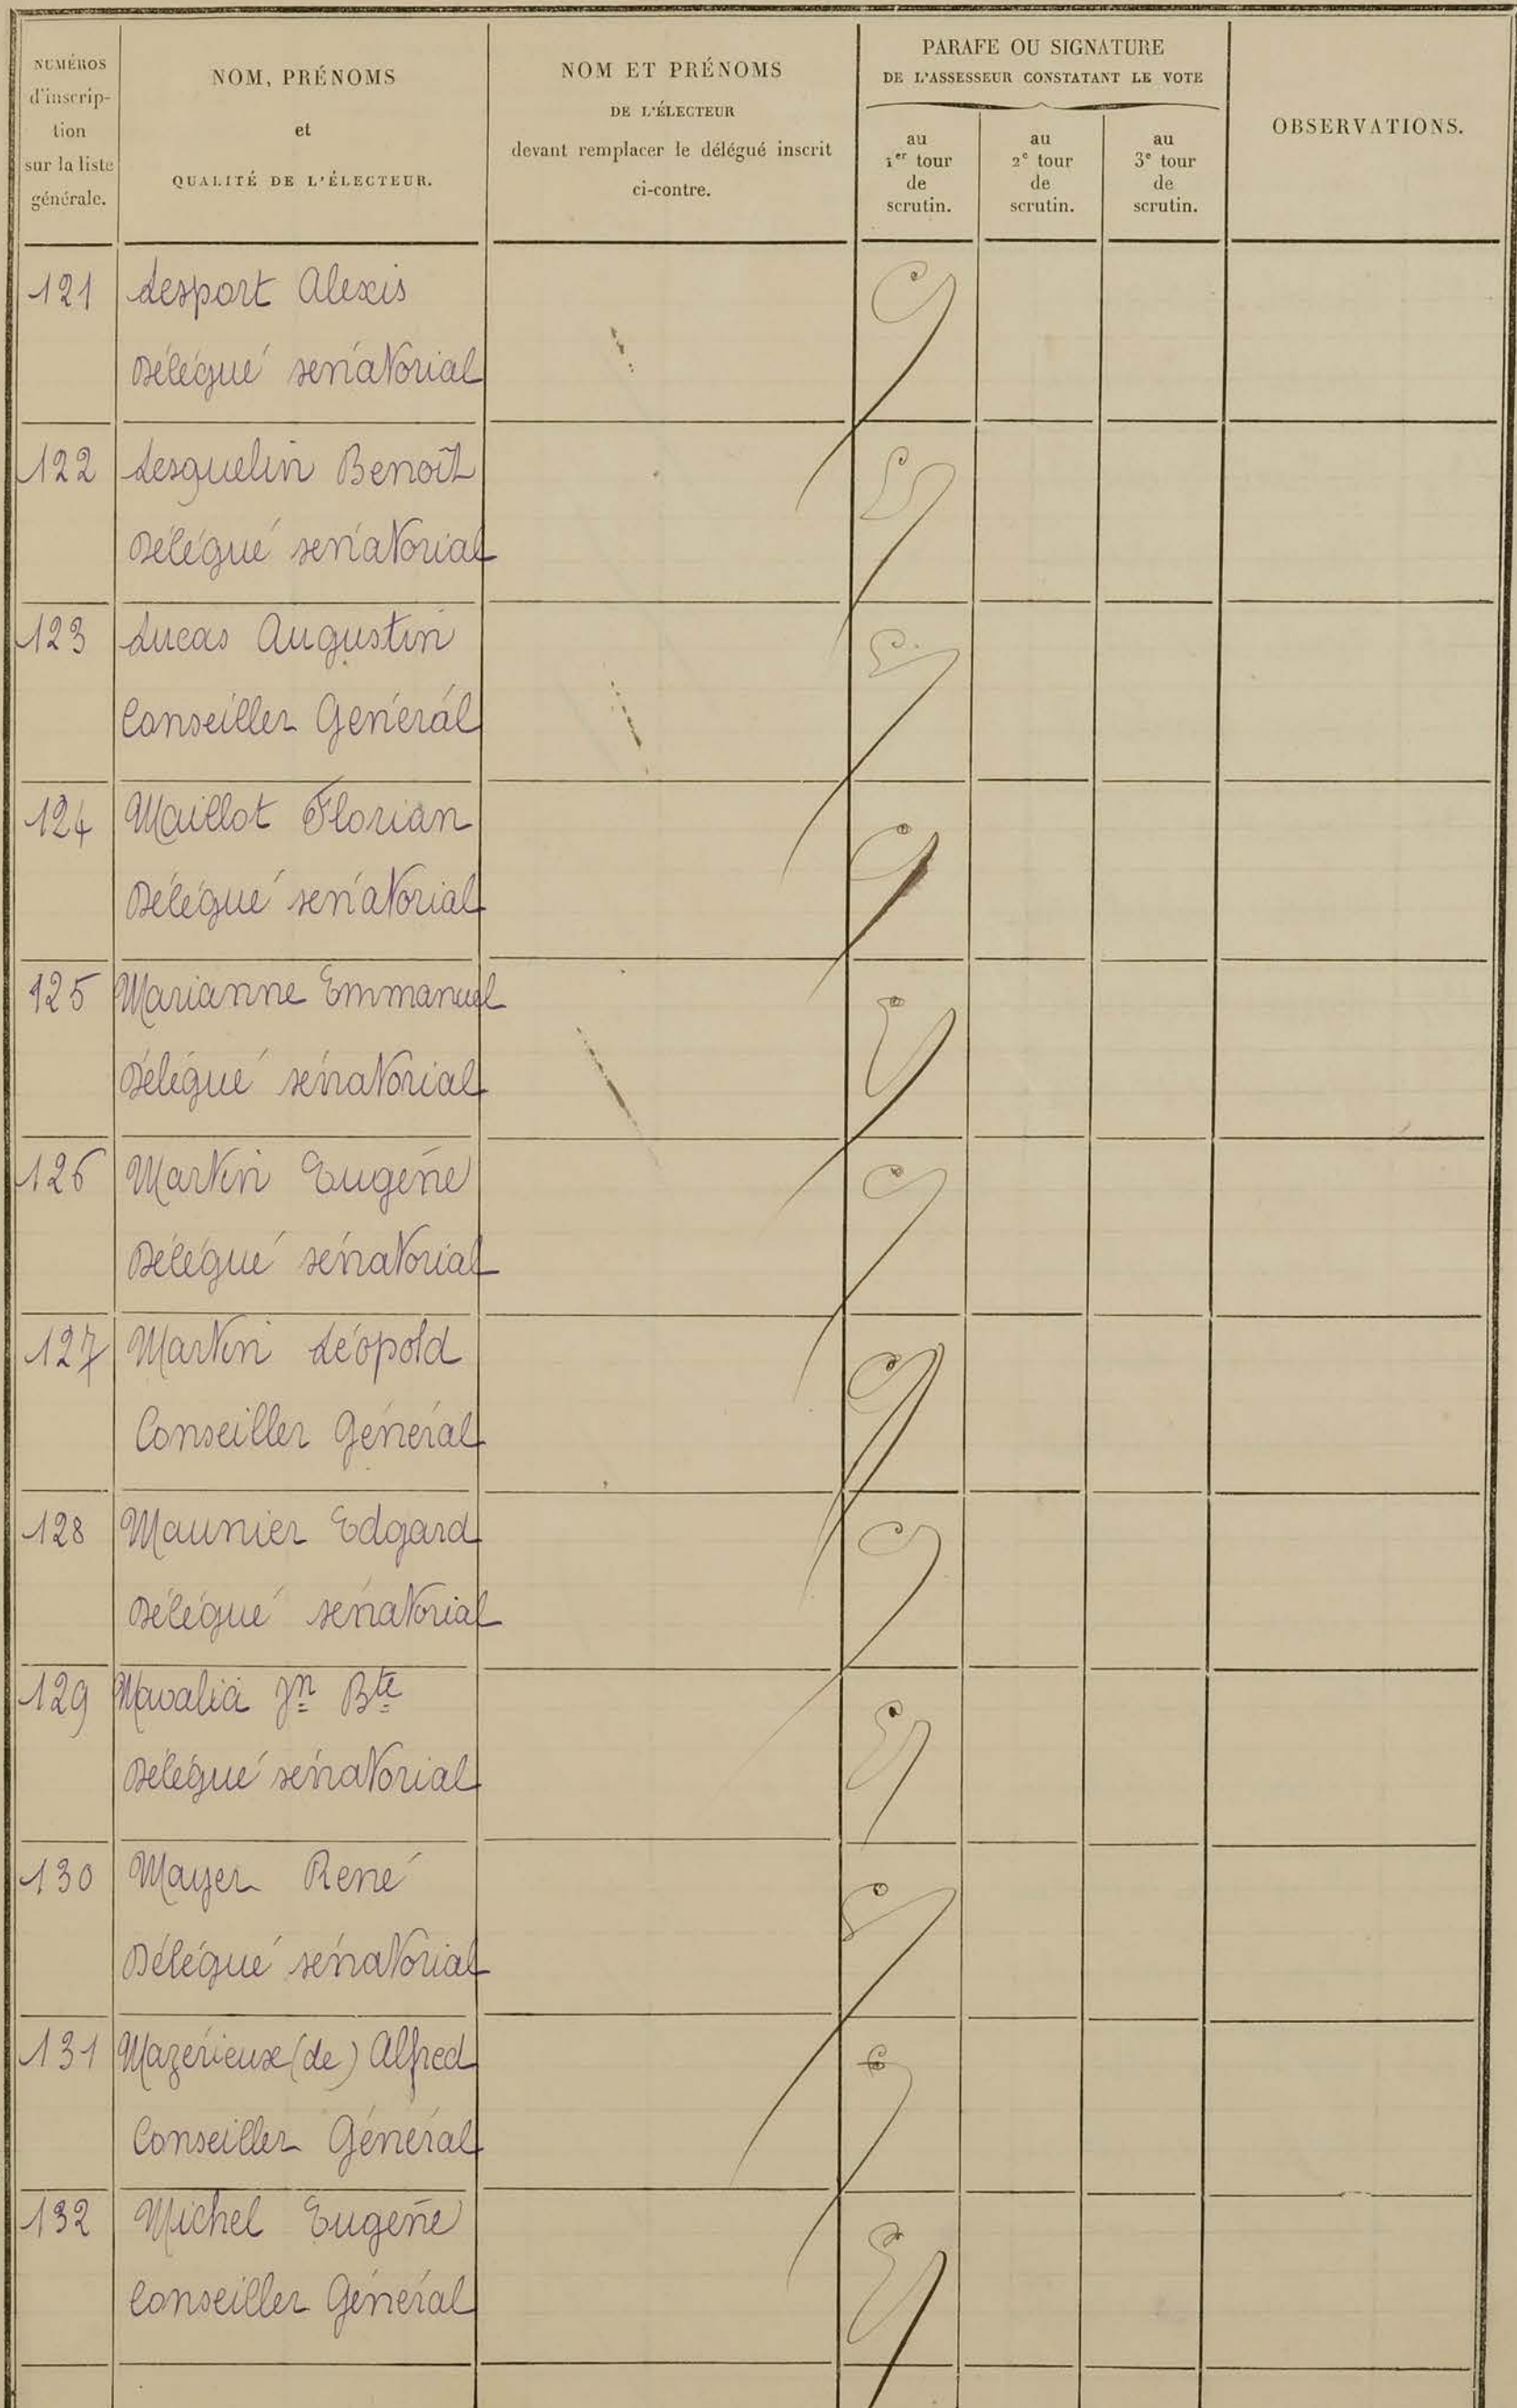 NUMÉROS
d'inscrip-
tion
sur la liste
générale.
NOM, PRÉNOMS
et
QUALITÉ DE L'ÉLECTEUR.
NOM ET PRÉNOMS
DE L'ÉLECTEUR
devant remplacer le délégué inscrit
ci-contre.
PARAFE OU SIGNATURE
DE L'ASSESSEUR CONSTATANT LE VOTE
au
1er tour
de
scrutin.
au
2e tour
de
scrutin.
au
3e tour
de
scrutin.
OBSERVATIONS.
121 Lesport Alexis
Délégué sénatorial
122 Lesquelin Benoît
Délégué sénatorial
123 Lucas Augustin
Conseiller Général
124 Maillot Florian
Délégué sénatorial
125 Marianne Emmanuel
Délégué sénatorial
126 Martin Eugène
Délégué sénatorial
127 Martin Léopold
Conseiller Général
128 Maunier Edgard
Délégué sénatorial
129 Mavalia Jn Bte
Délégué sénatorial
130 Mayer René
Délégué sénatorial
131 Mazérieux (de) Alfred
Conseiller Général
132 Michel Eugène
Conseiller Général